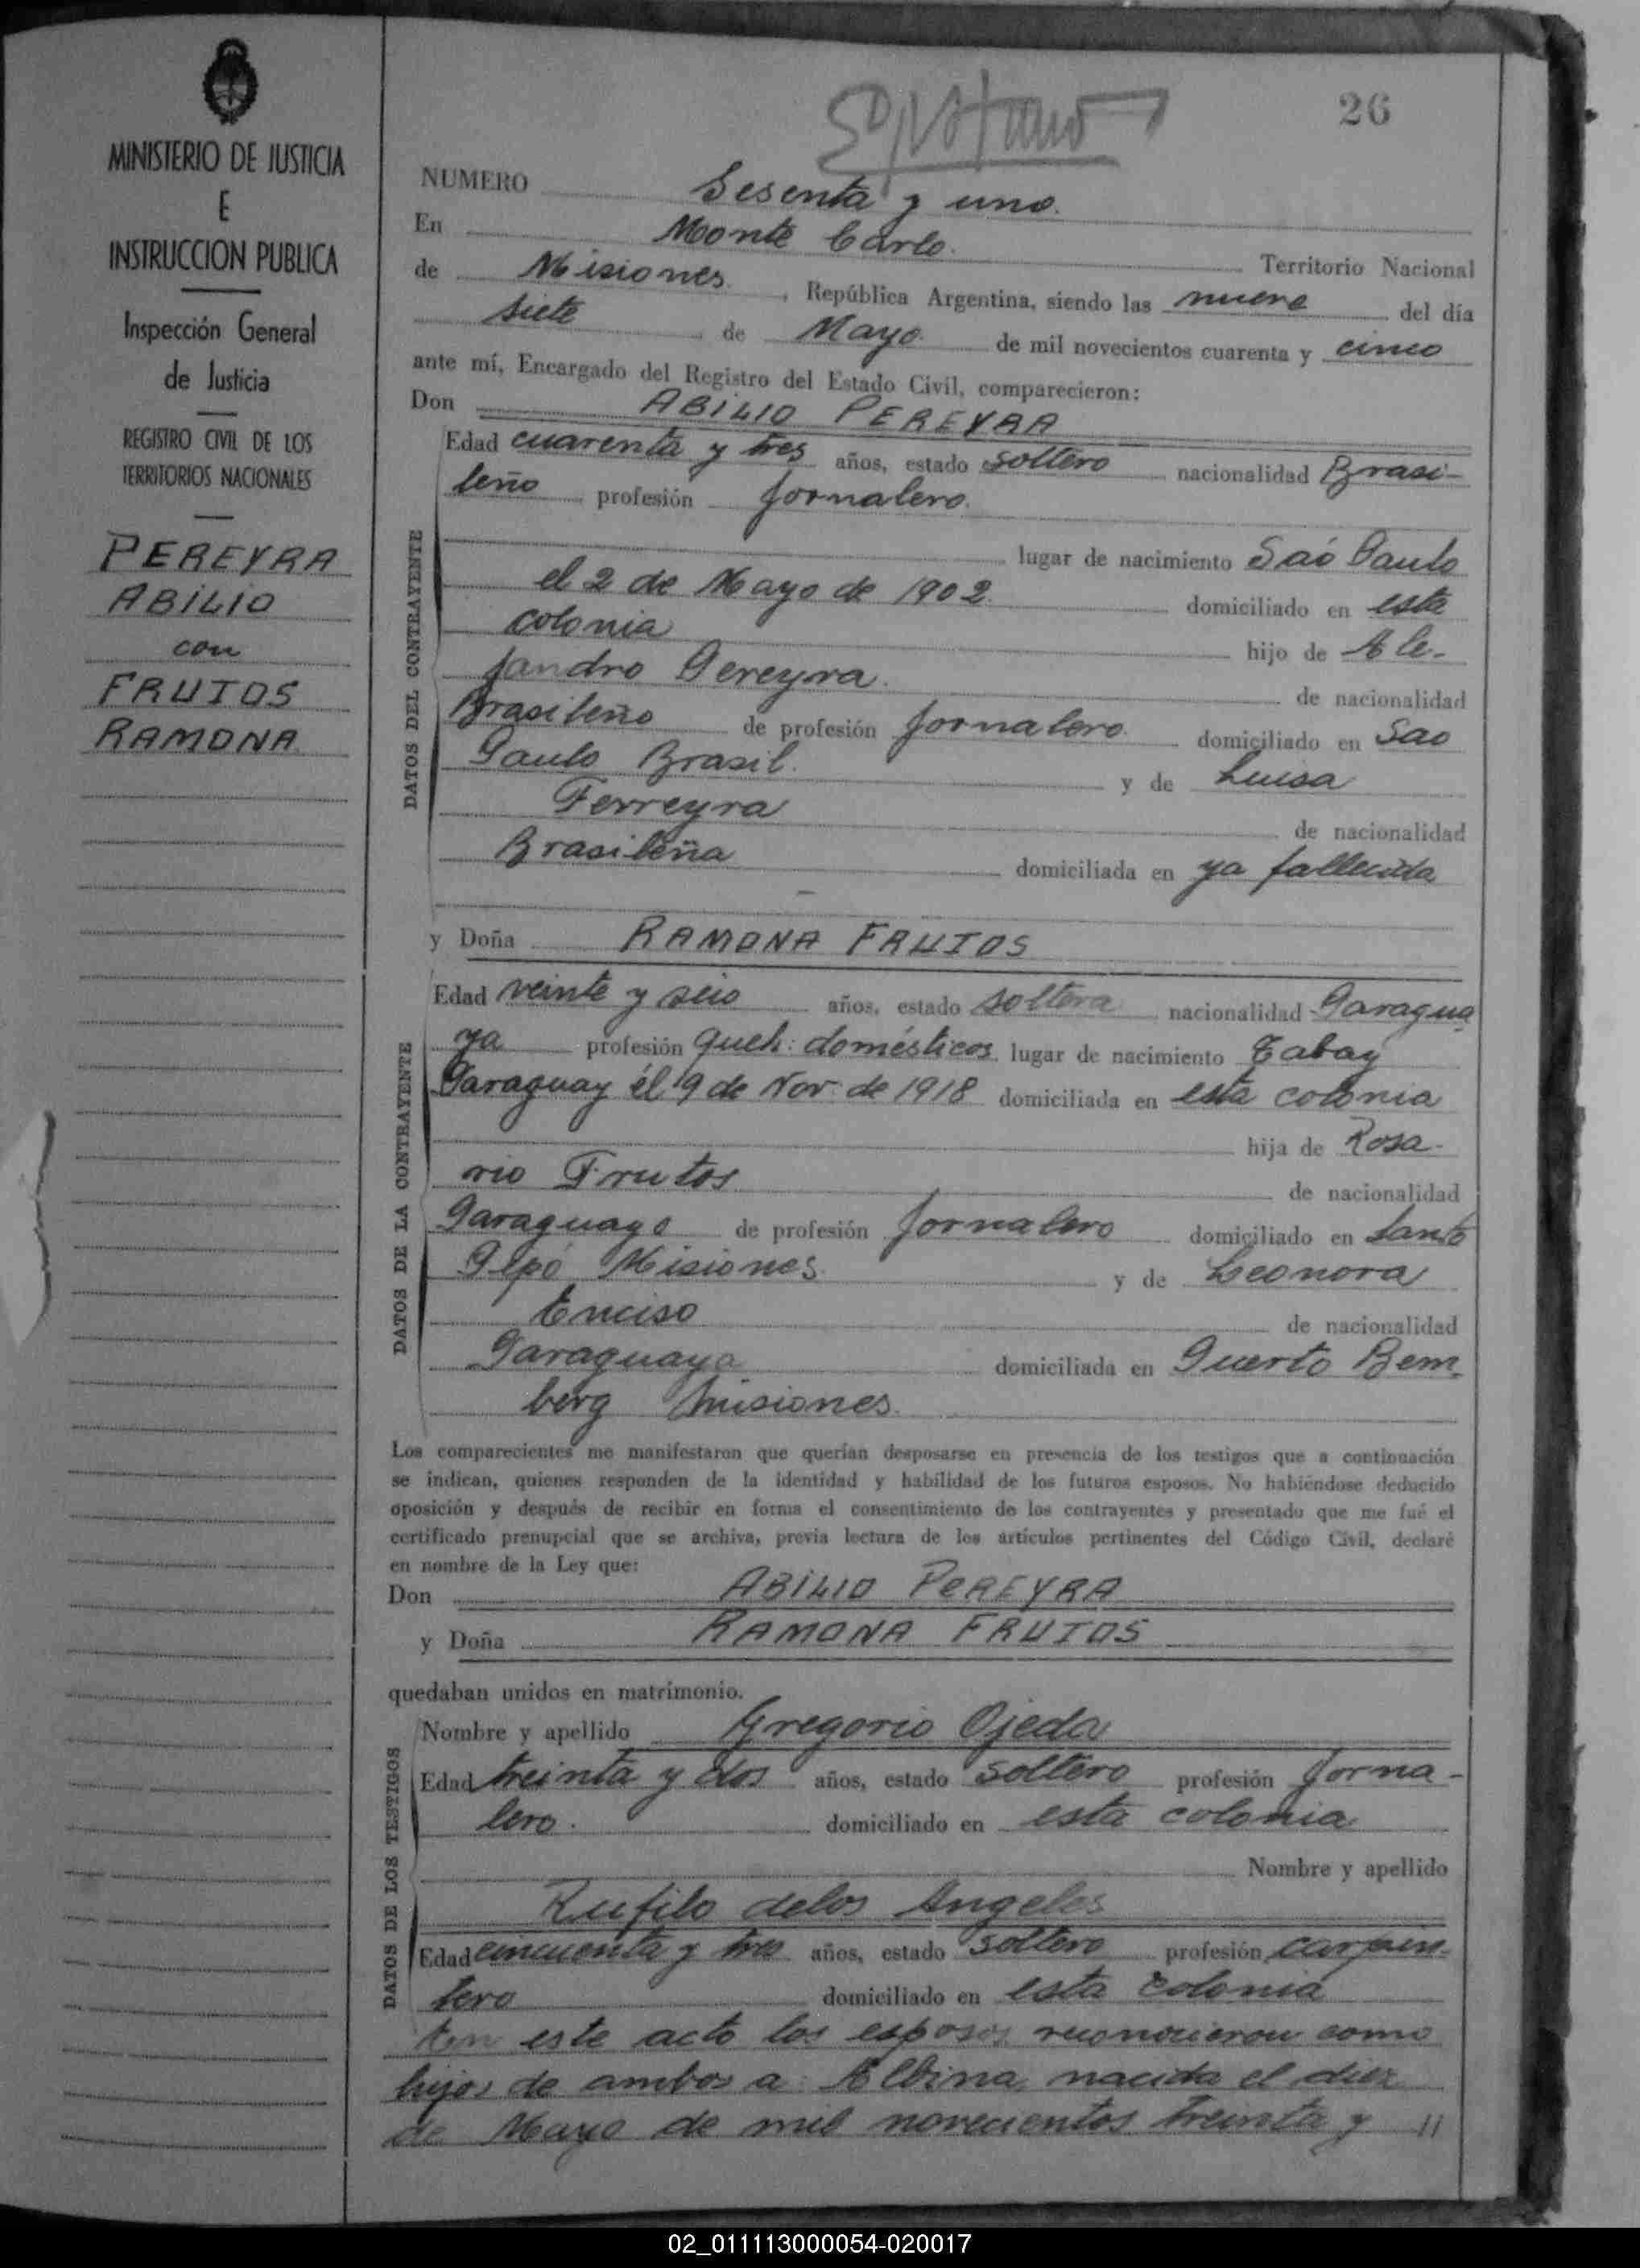 MINISTERIO DE JUSTICIA
E
INSTRUCCION PUBLICA
Inspección General
de Justicia
REGISTRO CIVIL DE LOS
TERRITORIOS NACIONALES
PEREYRA
ABILIO
con
FRUTOS
RAMONA
26
NUMERO Sesenta y uno.
En Monte Carlo.
de Misiones. Territorio Nacional
, República Argentina, siendo las nueve del día
siete de Mayo de mil novecientos cuarenta y cinco
ante mí, Encargado del Registro del Estado Civil, comparecieron:
Don ABILIO PEREYRA
DATOS DEL CONTRAYENTE
Edad cuarenta y tres años, estado soltero nacionalidad Brasi-
leño profesión jornalero.
lugar de nacimiento Saó Paulo
el 2 de Mayo de 1902 domiciliado en esta
colonia hijo de Ale-
jandro Pereyra. de nacionalidad
Brasileño de profesión jornalero. domiciliado en Sao
Paulo Brasil. y de Luisa
Ferreyra de nacionalidad
Brasileña domiciliada en ya fallecida
y Doña RAMONA FRUTOS
DATOS DE LA CONTRAYENTE
Edad veinte y seis años, estado soltera nacionalidad Paragua
ya profesión queh: domésticos lugar de nacimiento Tabay
Paraguay el 19 de Nov. de 1918 domiciliada en esta colonia
hija de Rosa-
rio Frutos de nacionalidad
Paraguayo de profesión jornalero domiciliado en Santo
Pipó Misiones. y de Leonora
Enciso de nacionalidad
Paraguaya domiciliada en Puerto Bem-
berg Misiones.
Los comparecientes me manifestaron que querían desposarse en presencia de los testigos que a continuación
se indican, quienes responden de la identidad y habilidad de los futuros esposos. No habiéndose deducido
oposición y después de recibir en forma el consentimiento de los contrayentes y presentado que me fué el
certificado prenupcial que se archiva, previa lectura de los artículos pertinentes del Código Civil, declaré
en nombre de la Ley que:
Don ABILIO PEREYRA
y Doña RAMONA FRUTOS
quedaban unidos en matrimonio.
DATOS DE LOS TESTIGOS
Nombre y apellido Gregorio Ojeda
Edad treinta y dos años, estado soltero profesión jorna-
lero. domiciliado en esta colonia
Nombre y apellido
Rufilo delos Angeles
Edad cincuenta y tres años, estado soltero profesión carpin-
tero domiciliado en esta colonia
En este acto los esposos reconocieron como
hijos de ambos a: Albina, nacida el diez
de Mayo de mil novecientos treinta y //
02_011113000054-020017